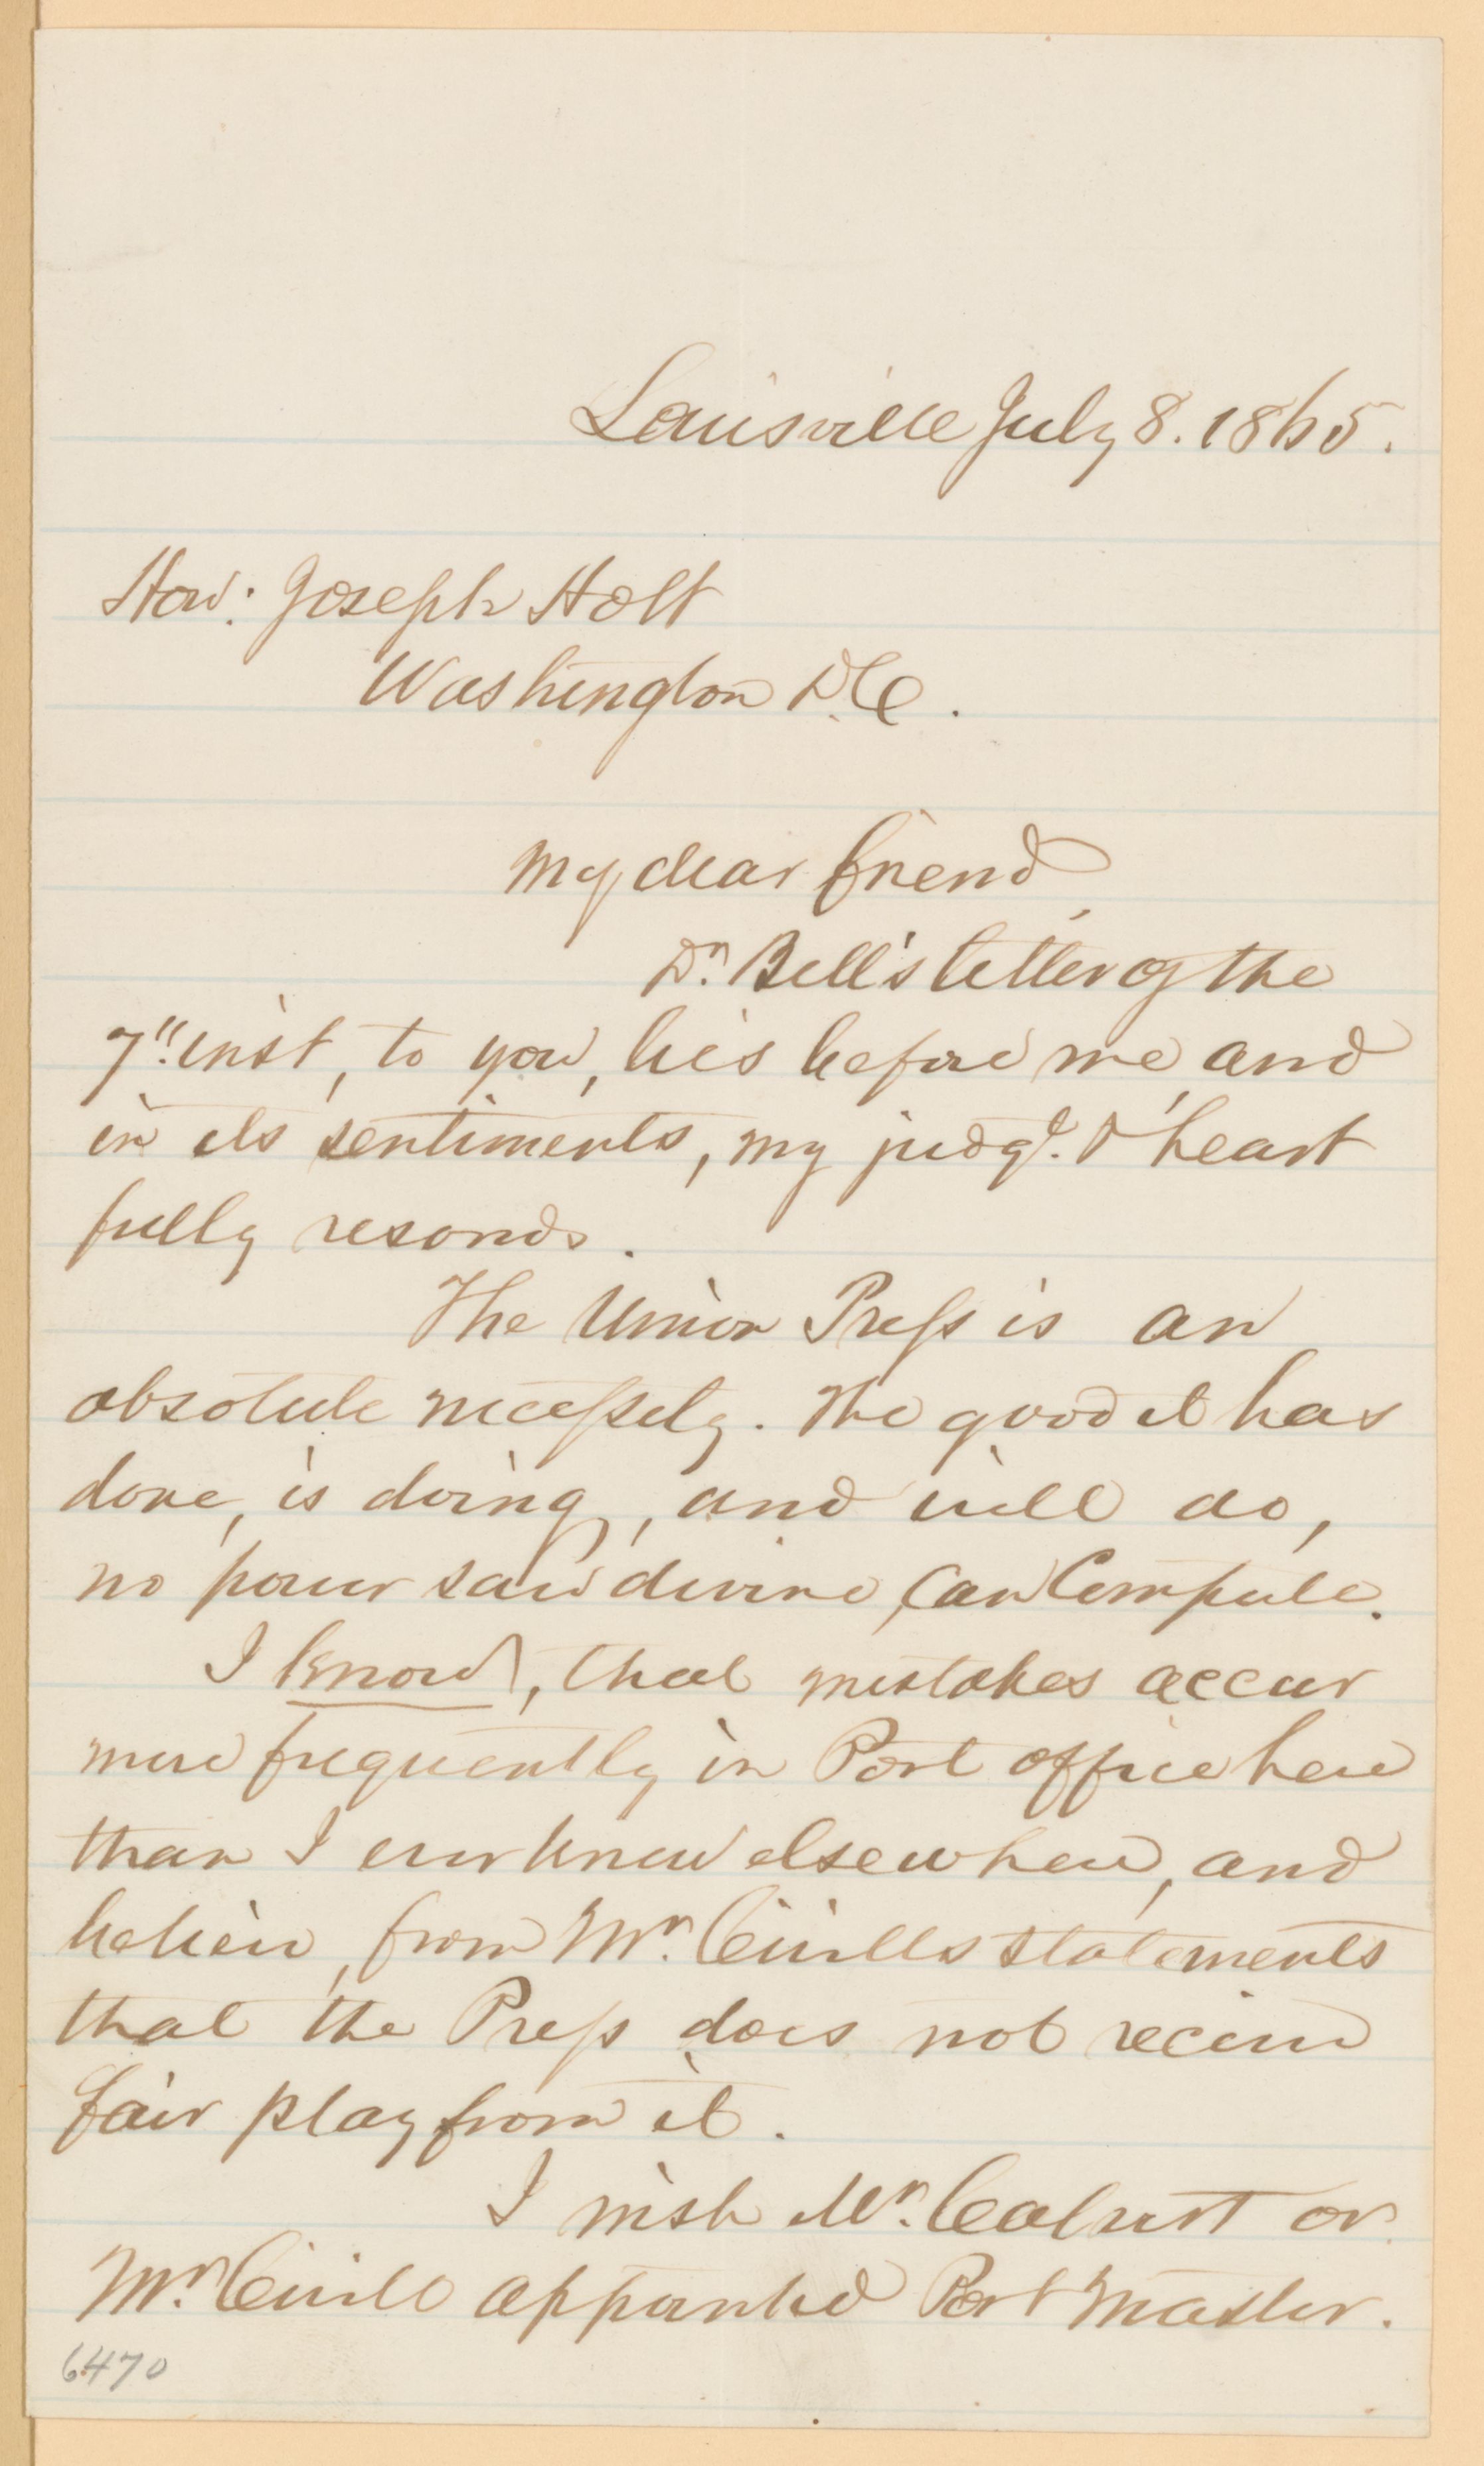 Louisville July 8. 1865.
Hon: Joseph Holt
Washington D.C.
My dear friend,
Dr. Bell's letter of the
7" inst, to you, lies before me, and
in its sentiments, my judgt. & heart
fully resonds.
The Union Press is an
absolute necessity. The good it has
done, is doing, and will do,
no power save divine, can compute.
I know, that mistakes occur
more frequently in Post office here
than I ever knew elsewhere, and
believe, from Mr. Civills statements
that the Press does not receive
fair play from it.
I wish Mr. Calvert or
Mr. Civill appointed Post Master.
6470